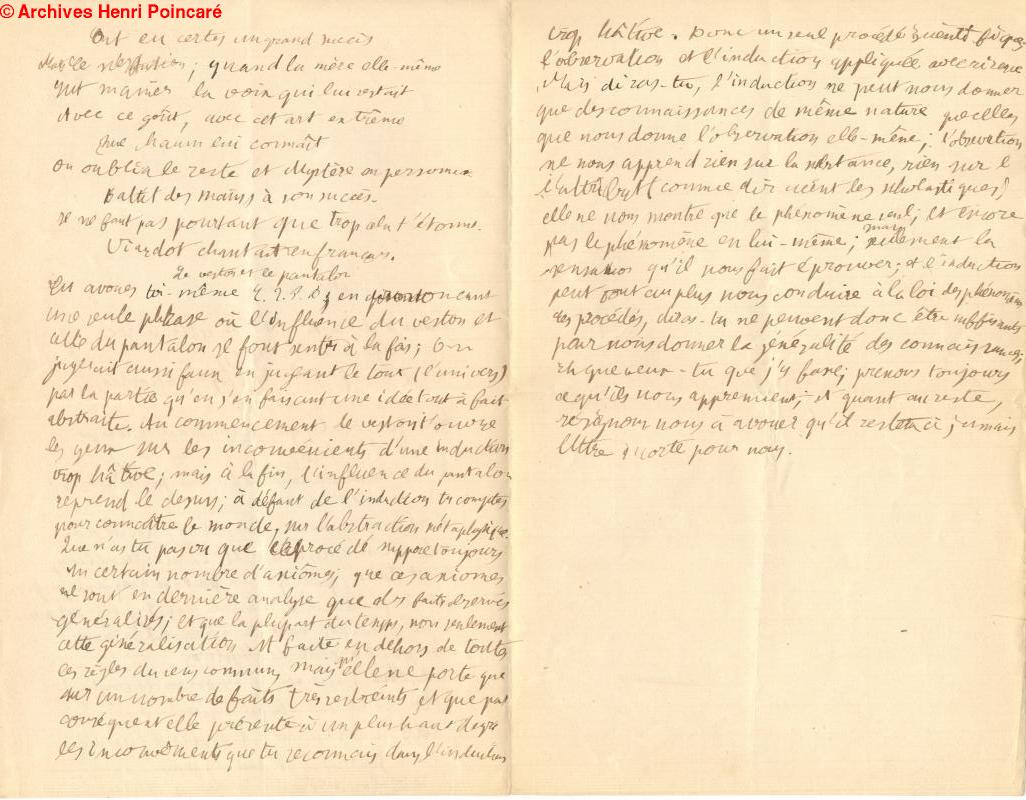 © Archives Henri Poincaré
Ont eu certes un grand succès
quand la mère elle-même
Eut la voix qui lui restait
Avec ce goût, avec cet art extrême
Que lui connaît
On oublia le reste et Mystère en personne
Battit des mains à son succès.
Il ne faut pas pourtant que trop cela t'étonne.
Viardot chantait en français.
Le veston et le pantalon
Tu avoues toi-même en
une seule phrase où l'influence du veston et
celle du pantalon se font sentir à la fois; on
jugerait aussi faux en jugeant le tout (l'univers)
par la partie qu'en s'en faisant une idée tout à fait
abstraite. Au commencement le veston t'ouvre
les yeux sur les inconvénients d'une induction
trop hâtive; mais à la fin, l'influence du pantalon
reprend le dessus; à défaut de l'induction tu comptes
pour connaître le monde, sur l'abstraction métaphysique.
Que n'as tu pas vu que ce procédé suppose toujours
un certain nombre d'axiômes; que ces axiomes
ne sont en dernière analyse que des faits observés
généralisés; et que la plupart du temps, non seulement
cette généralisation est faite en dehors de toutes
ces règles du sens commun, mais elle ne porte que
sur un nombre de faits très restreints et que par
conséquent elle présente à un plus haut degré
les inconvénients que tu reconnais dans l'induction
trop hâtive. Donc un seul procédé
l'observation et l'induction appliquée avec rigueur
Mais diras-tu, l'induction ne peut nous donner
que des connaissances de même nature que celles
que nous donne l'observation elle-même; l'observation
ne nous apprend rien sur la substance, rien sur
l'attribut (comme disaient les scholastiques)
elle ne nous montre que le phénomène seul; et encore
pas le phénomène en lui-même; mais seulement la
sensation qu'il nous fait éprouver; et l'induction
peut tout au plus nous conduire à la loi des phénomènes
ces procédés, diras-tu ne peuvent donc être suffisants
pour nous donner la généralité des connaissances;
Eh que veux-tu que j'y fasse; prenons toujours
ce qu'ils nous apprennent; et quant au reste,
résignons nous à avouer qu'il restera à jamais
lettre morte pour nous.